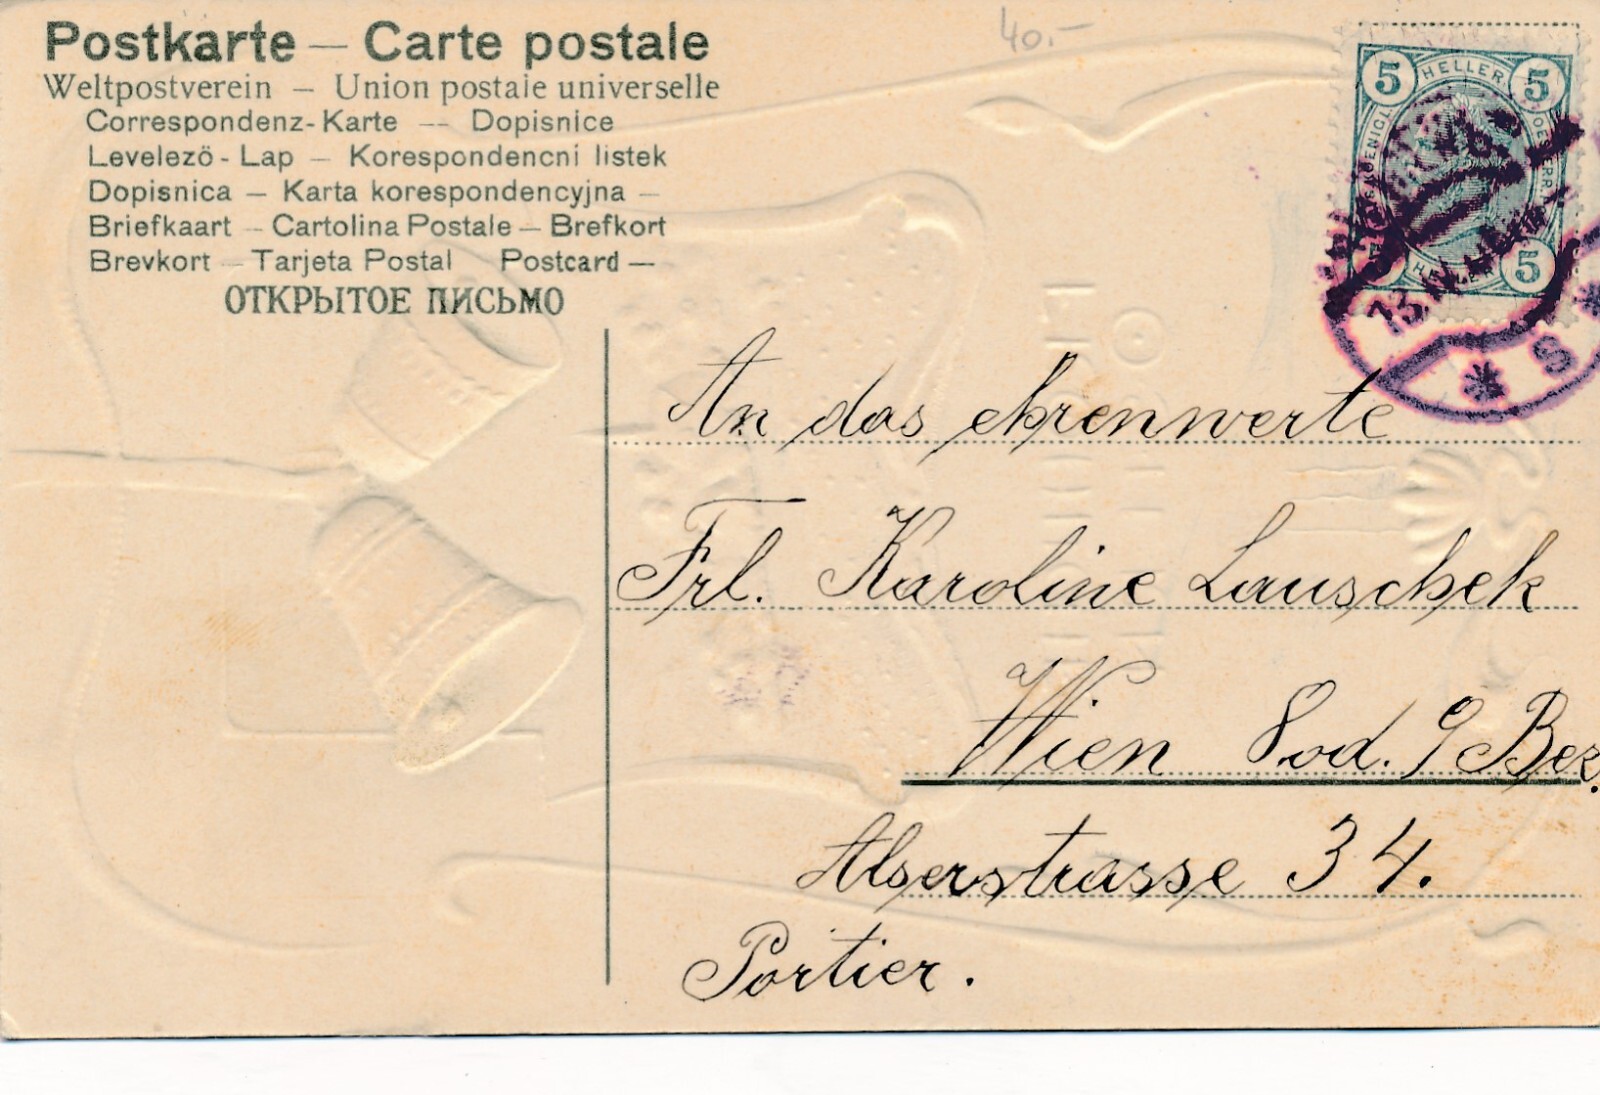 40.-
Postkarte — Carte postale
Weltpostverein — Union postale universelle
Correspondenz-Karte — Dopisnice
Levelezö - Lap — Korespondencni listek
Dopisnica — Karta korespondencyjna —
Briefkaart — Cartolina Postale — Brefkort
Brevkort — Tarjeta Postal Postcard —
ОТКРЫТОЕ ПИСЬМО
5 HELLER 5
HELLER 5
13
S
An das ehrenwerte
Frl. Karoline Lauschek
Wien 8 od. 9 Bez.
Alserstrasse 34.
Portier.